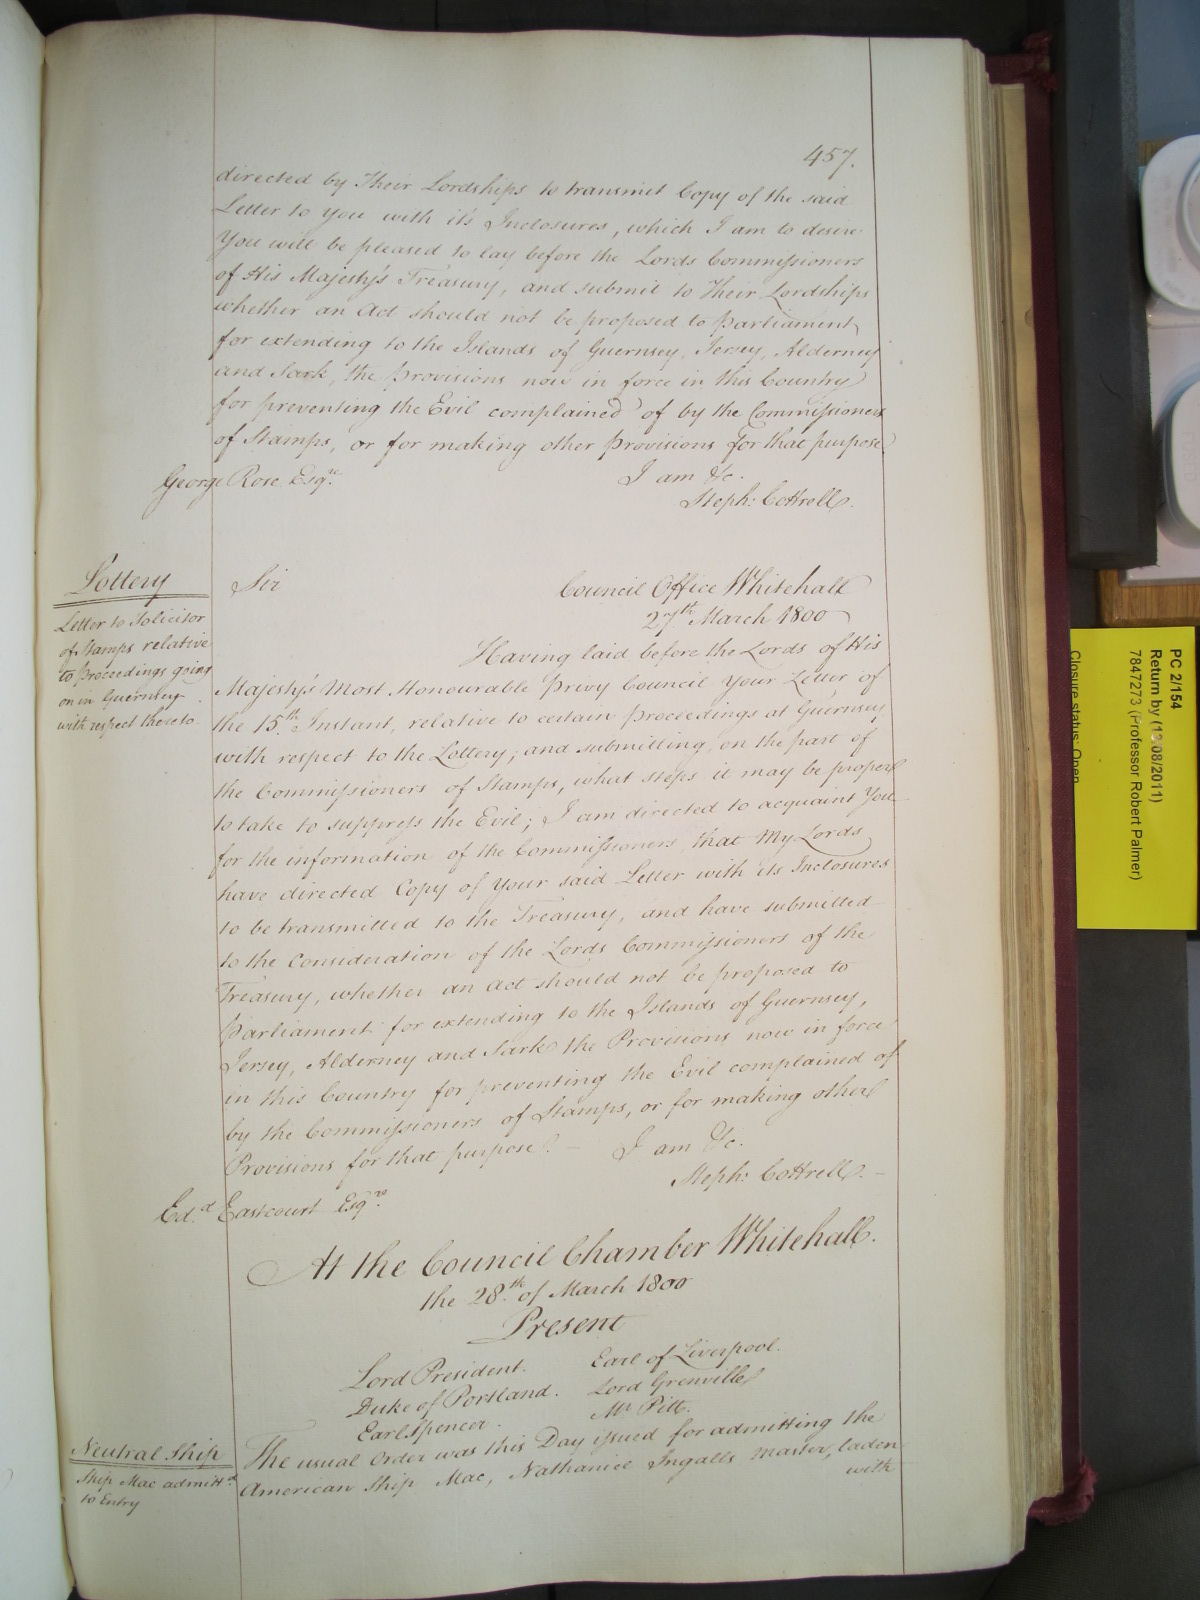 457.
directed by Their Lordships to transmit Copy of the said
Letter to You with it's Inclosures, which I am to desire
You will be pleased to lay before the Lords Commissioners
of His Majesty's Treasury, and submit to Their Lordships
whether an Act should not be proposed to Parliament
for extending to the Islands of Guernsey, Jersey, Alderney
and Sark, the Provisions now in force in this Country
for preventing the Evil complained of by the Commissioners
of Stamps, or for making other Provisions for that purpose
I am &c.
George Rose Esqre.
Steph: Cottrell.
Lottery
Letter to Solicitor
of Stamps relative
to Proceedings going
on in Guernsey
with respect thereto
Sir
Council Office Whitehall
27th March 1800
Having laid before the Lords of His
Majesty's Most Honourable Privy Council Your Letter of
the 15th Instant, relative to certain Proceedings at Guernsey,
with respect to the Lottery; and submitting, on the part of
the Commissioners of Stamps, what steps it may be proper
to take to suppress the Evil; I am directed to acquaint You
for the information of the Commissioners, that My Lords
have directed Copy of Your said Letter with its Inclosures
to be transmitted to the Treasury, and have submitted
to the Consideration of the Lords Commissioners of the
Treasury, whether an Act should not be proposed to
Parliament for extending to the Islands of Guernsey,
Jersey, Alderney and Sark the Provisions now in force
in this Country for preventing the Evil complained of
by the Commissioners of Stamps, or for making other
Provisions for that purpose. — I am &c.
Steph: Cottrell. —
Ed.d Eastcourt Esqre.
At the Council Chamber Whitehall.
the 28.th of March 1800
Present
Lord President. Earl of Liverpool.
Duke of Portland. Lord Grenville
Earl Spencer. Mr Pitt.
Neutral Ship
Ship Mac admitt.d
to Entry
The usual Order was this Day issued for admitting the
American Ship Mac, Nathaniel Ingalls Master, laden
with
PC 2/154
Return by (13/08/2011)
7847273 (Professor Robert Palmer)
Closure status: Open